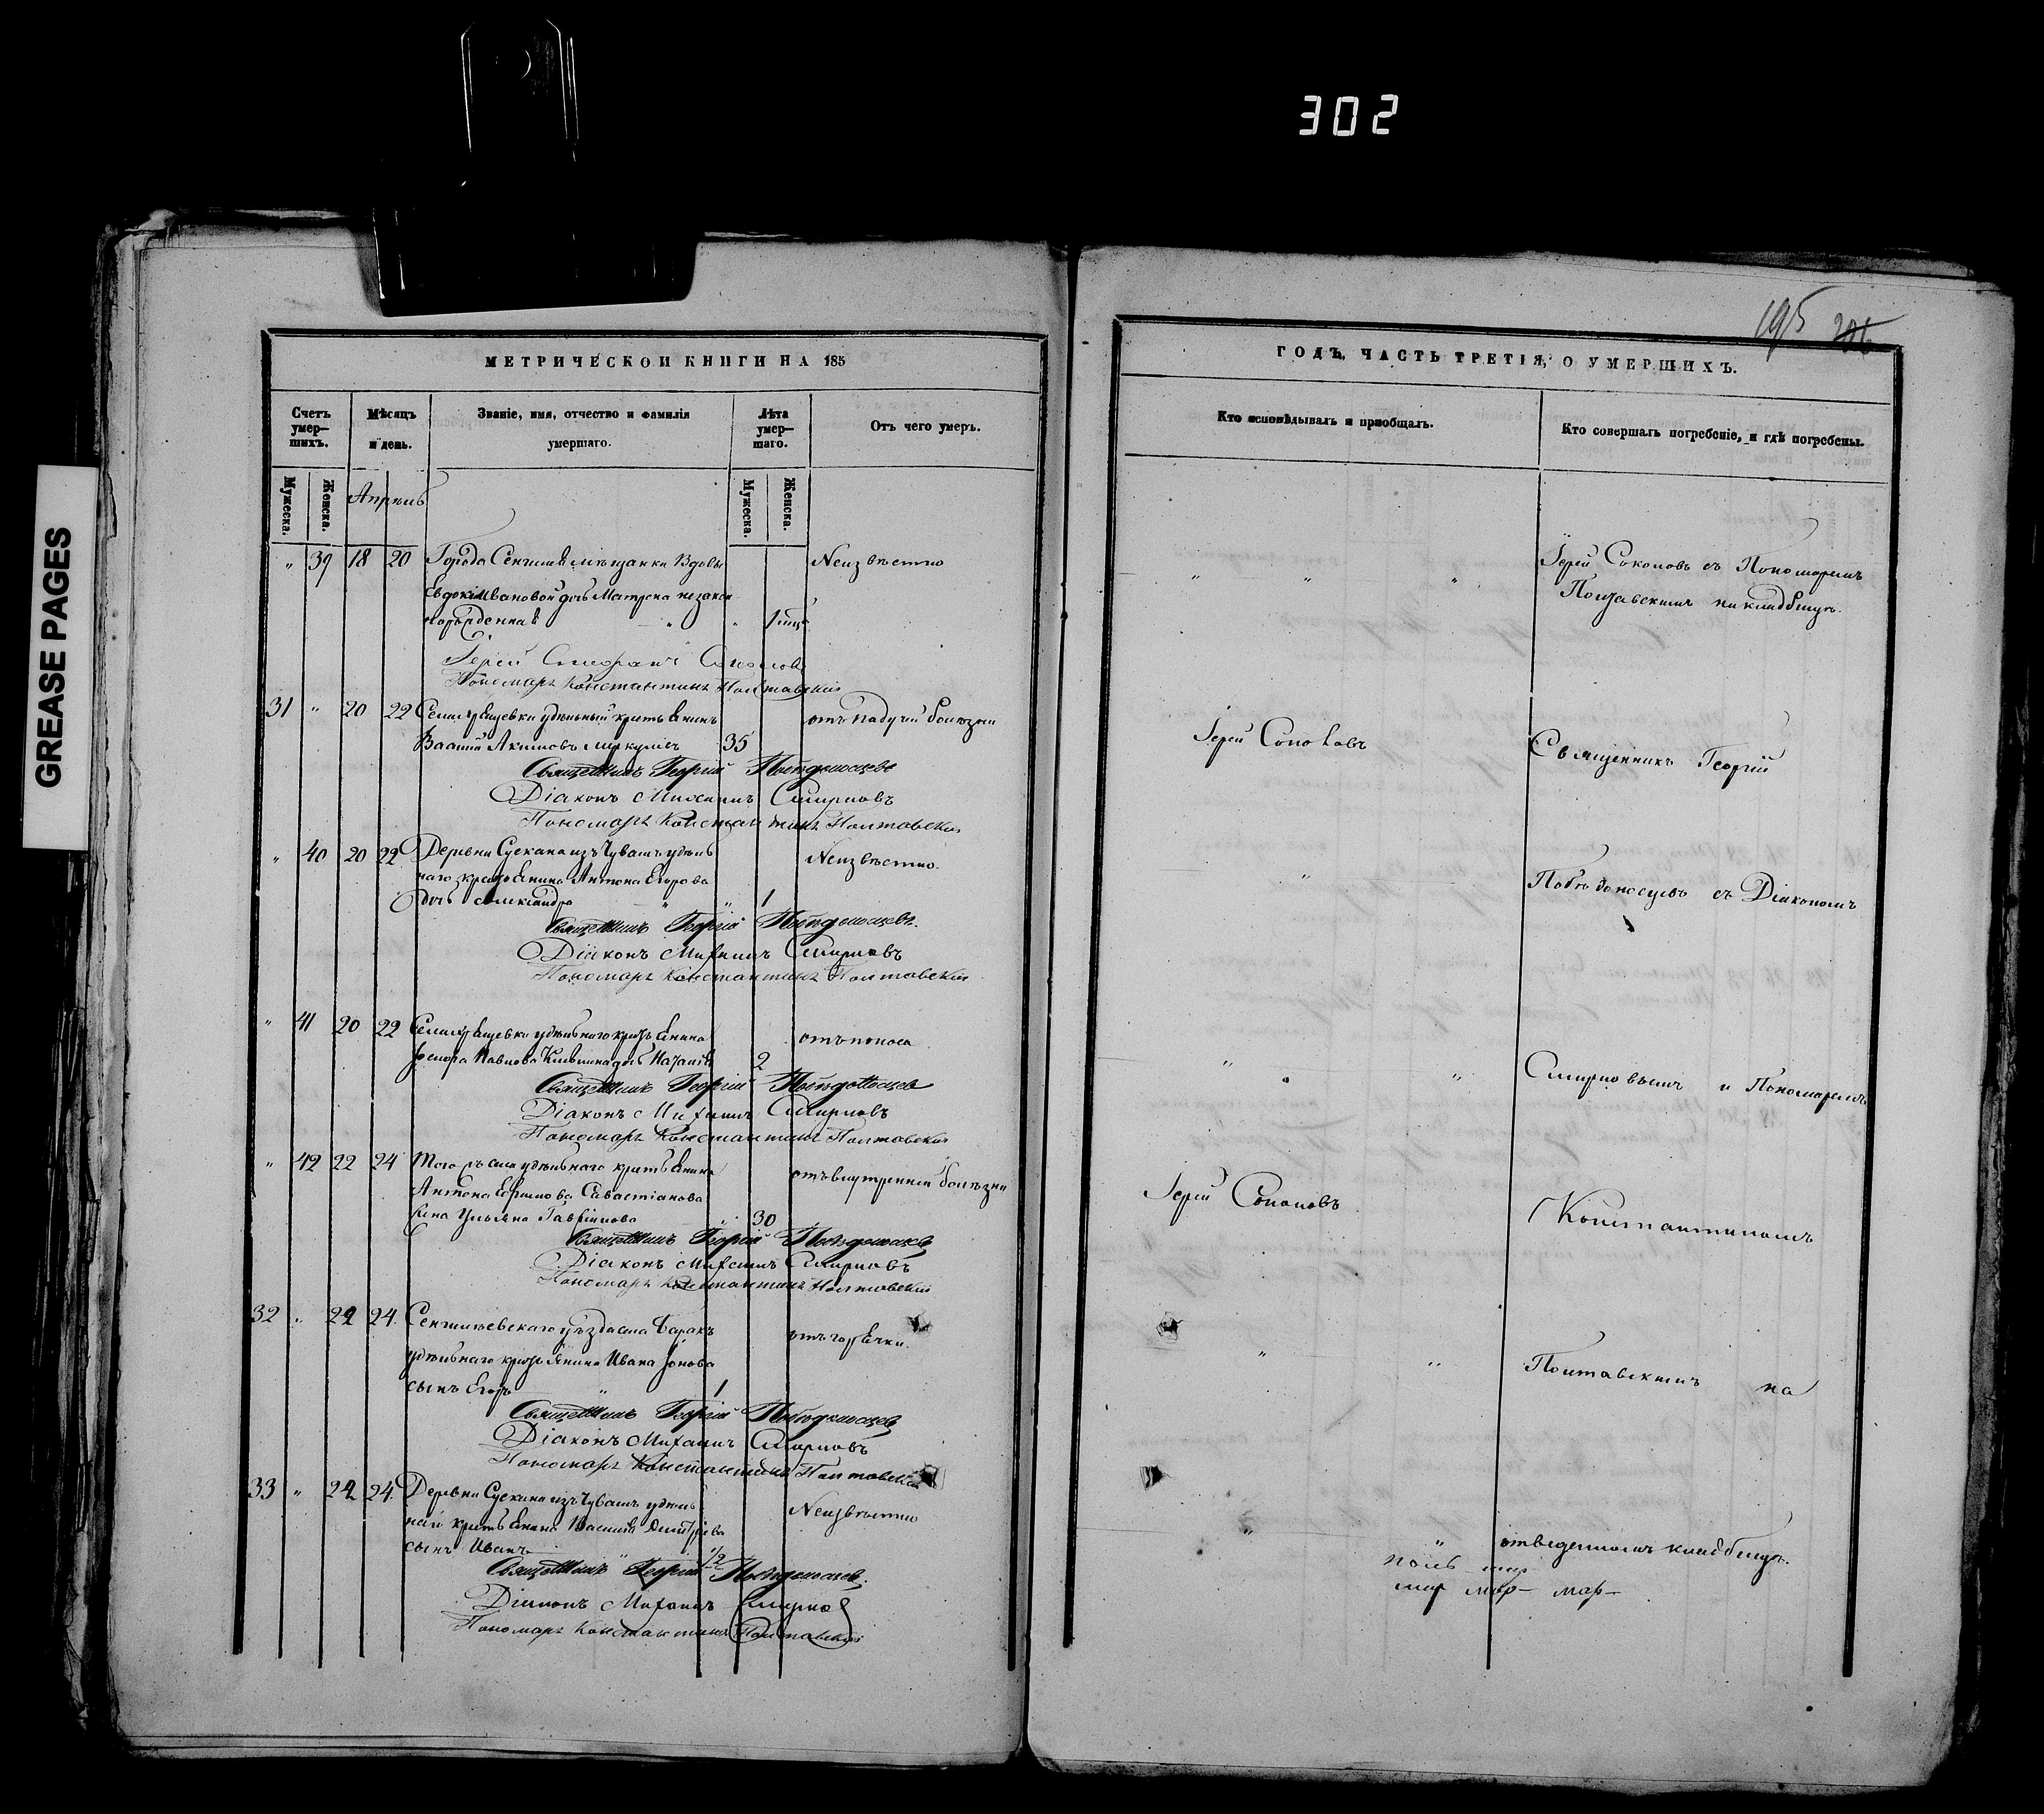 302
GREASE PAGES
195 206
МЕТРИЧЕСКОЙ КНИГИ НА 185
ГОДЪ, ЧАСТЬ ТРЕТІЯ, О УМЕРШИХЪ.
Счетъ умер-
шихъ.
Мѣсяцъ
и день.
Званіе, имя, отчество и фамилія
умершаго.
Лѣта
умер-
шаго.
Отъ чего умеръ.
Кто исповѣдывалъ и пріобщалъ.
Кто совершалъ погребеніе, и гдѣ погребены.
Мужеска.
Женска.
Апрѣль
Мужеска.
Женска.
„ 39 18 20 Города Сенгилея мѣщанки Вдовы Неизвѣстно
Евдокіи Ивановой дочь Матрена незакон
норожденная „ „ 1 мѣс.
Іерей Соколовъ
Пономарь Константинъ Полтавскій
Іерей Соколовъ съ Пономаремъ
Полтавскимъ на кладбищѣ.
31 „ 20 22 удѣльный крестьянинъ отъ падучей болѣзни
Василій Акимовъ 35
Священникъ Георгій Побѣдоносцевъ
Діаконъ Михаилъ Смирновъ
Пономарь Константинъ Полтавскій
Іерей Соколовъ
Священникъ Георгій
„ 40 20 22 Деревни изъ Чувашъ удѣль
наго крестьянина Антона Егорова Неизвѣстно.
дочь Александра „ „ 1
Священникъ Георгій Побѣдоносцевъ.
Діаконъ Михаилъ Смирновъ
Пономарь Константинъ Полтавскій
„ Побѣдоносцевъ съ Діакономъ
„ 41 20 22 удѣльнаго крестьянина отъ поноса
Павлова дочь 2
Священникъ Георгій Побѣдоносцевъ
Діаконъ Михаилъ Смирновъ
Пономарь Константинъ Полтавскій
„ „ Смирновымъ и Пономаремъ
„ 42 22 24 Того же села удѣльнаго крестьянина отъ внутренней болѣзни
Антона Савастіанова
жена Ульяна Гаврилова „ 30
Священникъ Георгій Побѣдоносцевъ
Діаконъ Михаилъ Смирновъ
Пономарь Константинъ Полтавскій
Іерей Соколовъ
Константиномъ
32 „ 22 24. Сенгилеевскаго уѣзда села отъ горячки.
удѣльнаго крестьянина Ивана
сынъ Егоръ „ 1
Священникъ Георгій Побѣдоносцевъ
Діаконъ Михаилъ Смирновъ
Пономарь Константинъ Полтавскій
„ „ Полтавскимъ на
33 „ 22 24. Деревни изъ Чувашъ удѣль Неизвѣстно
крестьянина Василія Дмитріева
сынъ Иванъ „ 1/2
Священникъ Георгій Побѣдоносцевъ.
Діаконъ Михаилъ Смирновъ
Пономарь Константинъ Полтавскій
„ „ отведенномъ кладбищѣ.